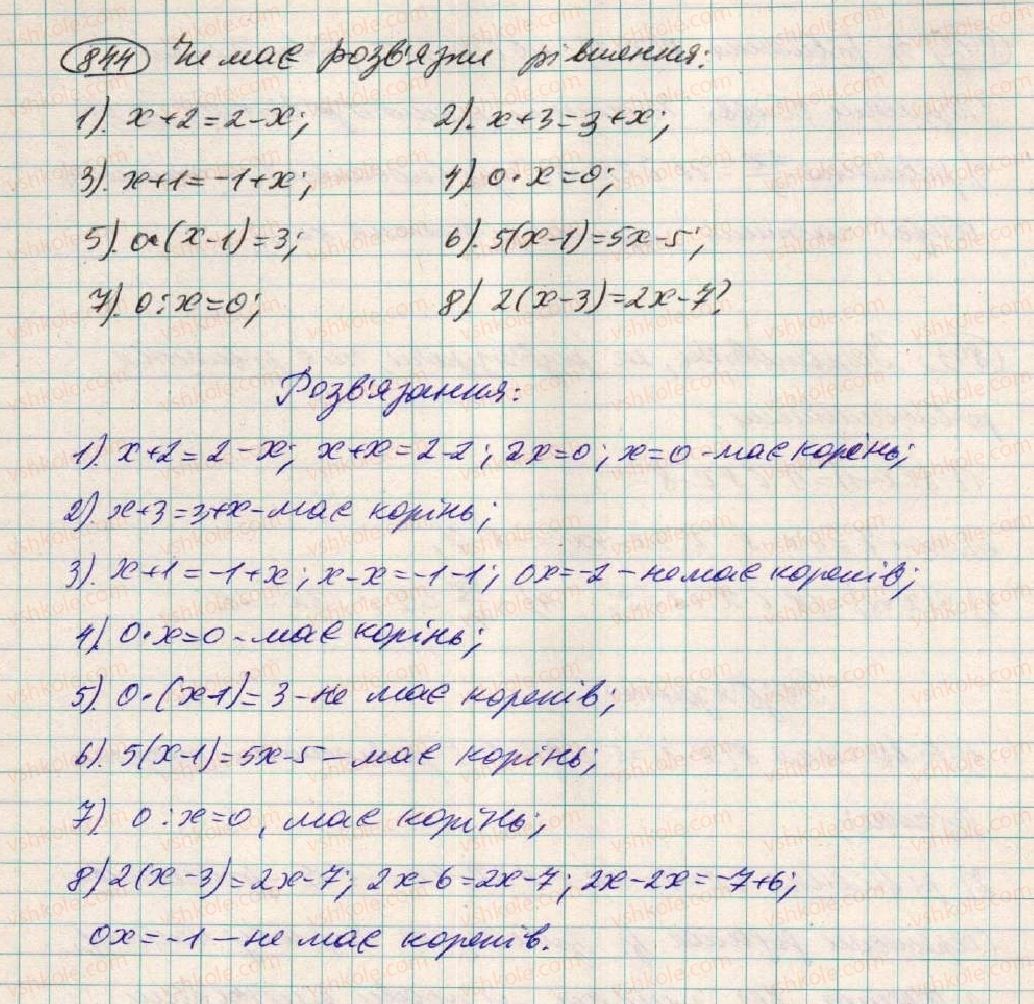 844 Чи має розв'язки рівняння:
1). x+2=2-x; 2). x+3=3+x;
3). x+1=-1+x; 4). 0·x=0;
5). 0·(x-1)=3; 6). 5(x-1)=5x-5;
7). 0:x=0; 8) 2(x-3)=2x-7?
Розв'язання:
1). x+2=2-x; x+x=2-2; 2x=0; x=0 - має корінь;
2). x+3=3+x - має корінь;
3). x+1=-1+x; x-x=-1-1; 0x=-2 - не має коренів;
4). 0·x=0 - має корінь;
5). 0·(x-1)=3 - не має коренів;
6). 5(x-1)=5x-5 - має корінь;
7) 0:x=0, має корінь;
8) 2(x-3)=2x-7; 2x-6=2x-7; 2x-2x=-7+6;
0x=-1 - не має коренів.